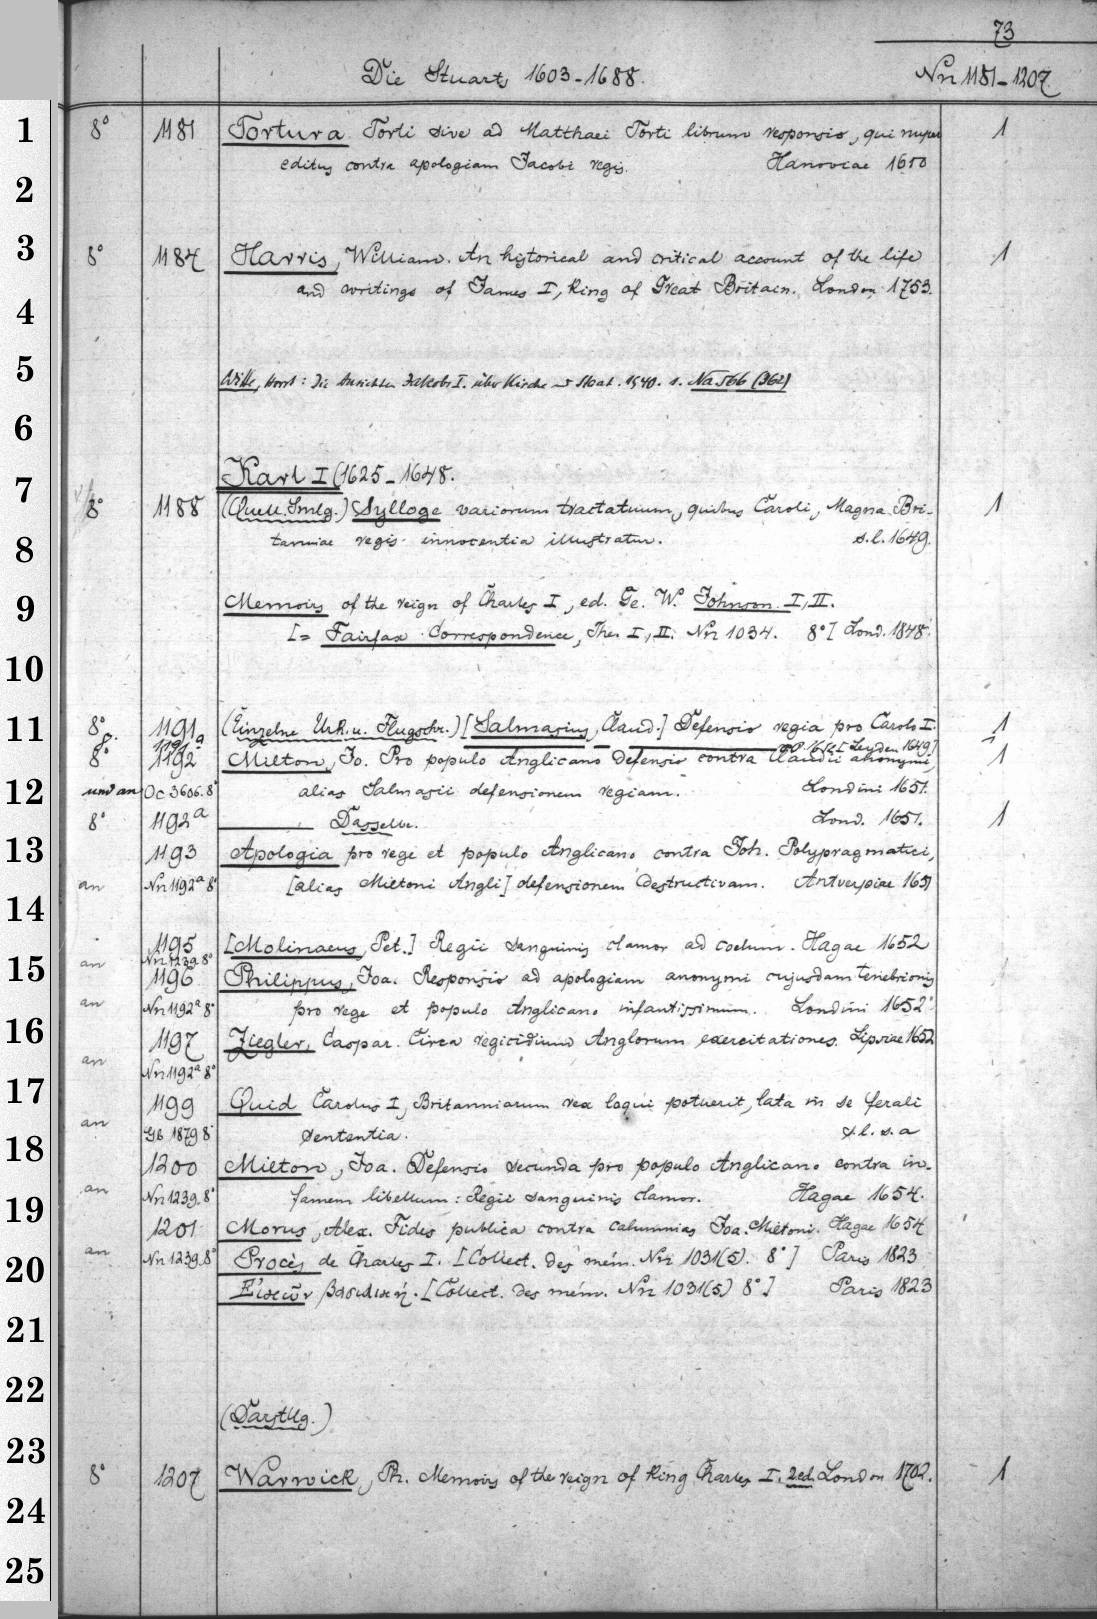 73
Die Stuarts 1603-1688. Nn 1181-1207
1 8° 1181 Tortura Torti sive ad Matthaei Torti librum responsio, qui nuper 1
editus contra apologiam Jacobi regis. Hanoviae 1610
2
3 8° 1184 Harris, William. An historical and critical account of the life 1
and writings of James I, King of Great Britain. London 1753.
4
5 Witte, Horst: Die Ansichten Jakobs I. über Kirche u. Staat. 1940. s. Na 566 (362)
6
Karl I (1625-1648.
7 8° 1188 (Quell. Smlg.) Sylloge variorum tractatuum, quibus Caroli, Magna Bri- 1
8 tanniae regis innocentia illustratur. s.l. 1649.
9 Memoirs of the reign of Charles I, ed. Ge. W. Johnson I, II.
[= Fairfax Correspondence, The I, II. Nn 1034. 8°] Lond. 1848.
10
11 8° 1191 (Einzelne Urk. u. Flugschr.) [Salmasius, Claud.] Defensio regia pro Carolo I. 1
Leyden 1649]
8° 1192 Milton, Jo. Pro populo Anglicano defensio contra Claudii anonymi, 1
12 und an Oc 3606. 8° alias Salmasii defensionem regiam. Londini 1651.
8° 1192a Dasselbe. Lond. 1651. 1
13 1193 Apologia pro rege et populo Anglicano contra Joh. Polypragmatici,
an Nn 1192a 8° [alias Miltoni Angli] defensionem destructivam. Antverpiae 1651
14
1195 [Molinaeus, Pet.] Regii sanguinis clamor ad coelum. Hagae 1652
15 an Nn 1239 8°
1196 Philippus, Joa. Responsio ad apologiam anonymi cujusdam tenebrionis
an Nn 1192a 8° pro rege et populo Anglicano infantissimum. Londini 1652
16 1197 Ziegler, Caspar. Circa regicidium Anglorum exercitationes. Lipsiae 1652
an Nn 1192a 8°
17 1199 Quid Carolus I, Britanniarum rex loqui potuerit, lata in se ferali
an Gb 1879 8° sententia. s.l.s.a
18 1200 Milton, Joa. Defensio secunda pro populo Anglicano contra in-
an Nn 1239. 8° famem libellum: Regii sanguinis clamor. Hagae 1654.
19 1201 Morus, Alex. Fides publica contra calumnias Joa. Miltoni. Hagae 1654
20 an Nn 1239. 8° Procès de Charles I. [Collect. des mém. Nn 1031(5). 8°] Paris 1823
Εἰκὼν βασιλική. [Collect. des mém. Nn 1031(5) 8°] Paris 1823
21
22
(Darstllg.)
23 8° 1207 Warwick, Ph. Memoirs of the reign of King Charles I. 2ed. London 1702. 1
24
25